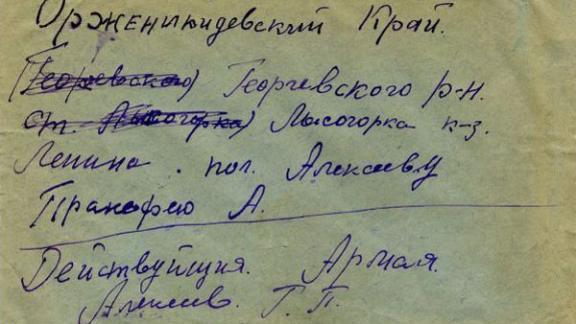 Орженикидевский Край.
(Георевского) Георгевского р-н.
ст. Лысогорка) Лысогорка к-з.
Ленина. пол. Алексеву
Пракофею А.
Действуйщия. Армая.
Алексев. Г. П.